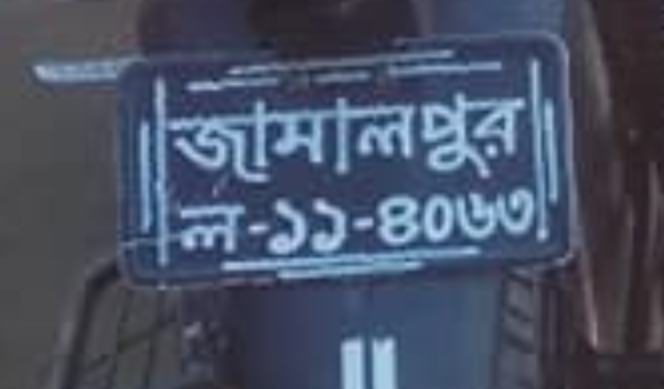 জামালপুর
ল-১১-৪০৬৩